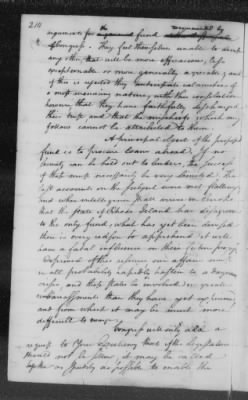 210
the recommended by
arguments for a fund
Congress. They feel themselves unable to devise
any other, that will be more efficacious, less
exceptionable or more generally agreeable; and
if this is rejected they anticipate calamities of
a most menacing nature, with this consolation
however, that they have faithfully discharged
their trust, and that the mischiefs which may
follow cannot be attributed to them.
A principal object of the proposed
fund is to procure loans abroad. If no
security can be held out to lenders, the success
of these must necessarily be very limited. The
last accounts on the subject were not flattering
and when intelligence shall arrive in Europe
that the State of Rhode Island has disagreed
to the only fund, which has yet been devised,
there is every reason to apprehend it will
have a fatal influence on their future progress
Deprived of this resource our affairs must
in all probability rapidly hasten to a dangerous
crisis, and these States be involved in greater
embarrassments than they have yet experienced
and from which it may be much more
difficult to emerge.
Congress will only add a
request to Your Excellency that if the Legislature
should not be sitting, it may be called
together as speedily as possible to enable them